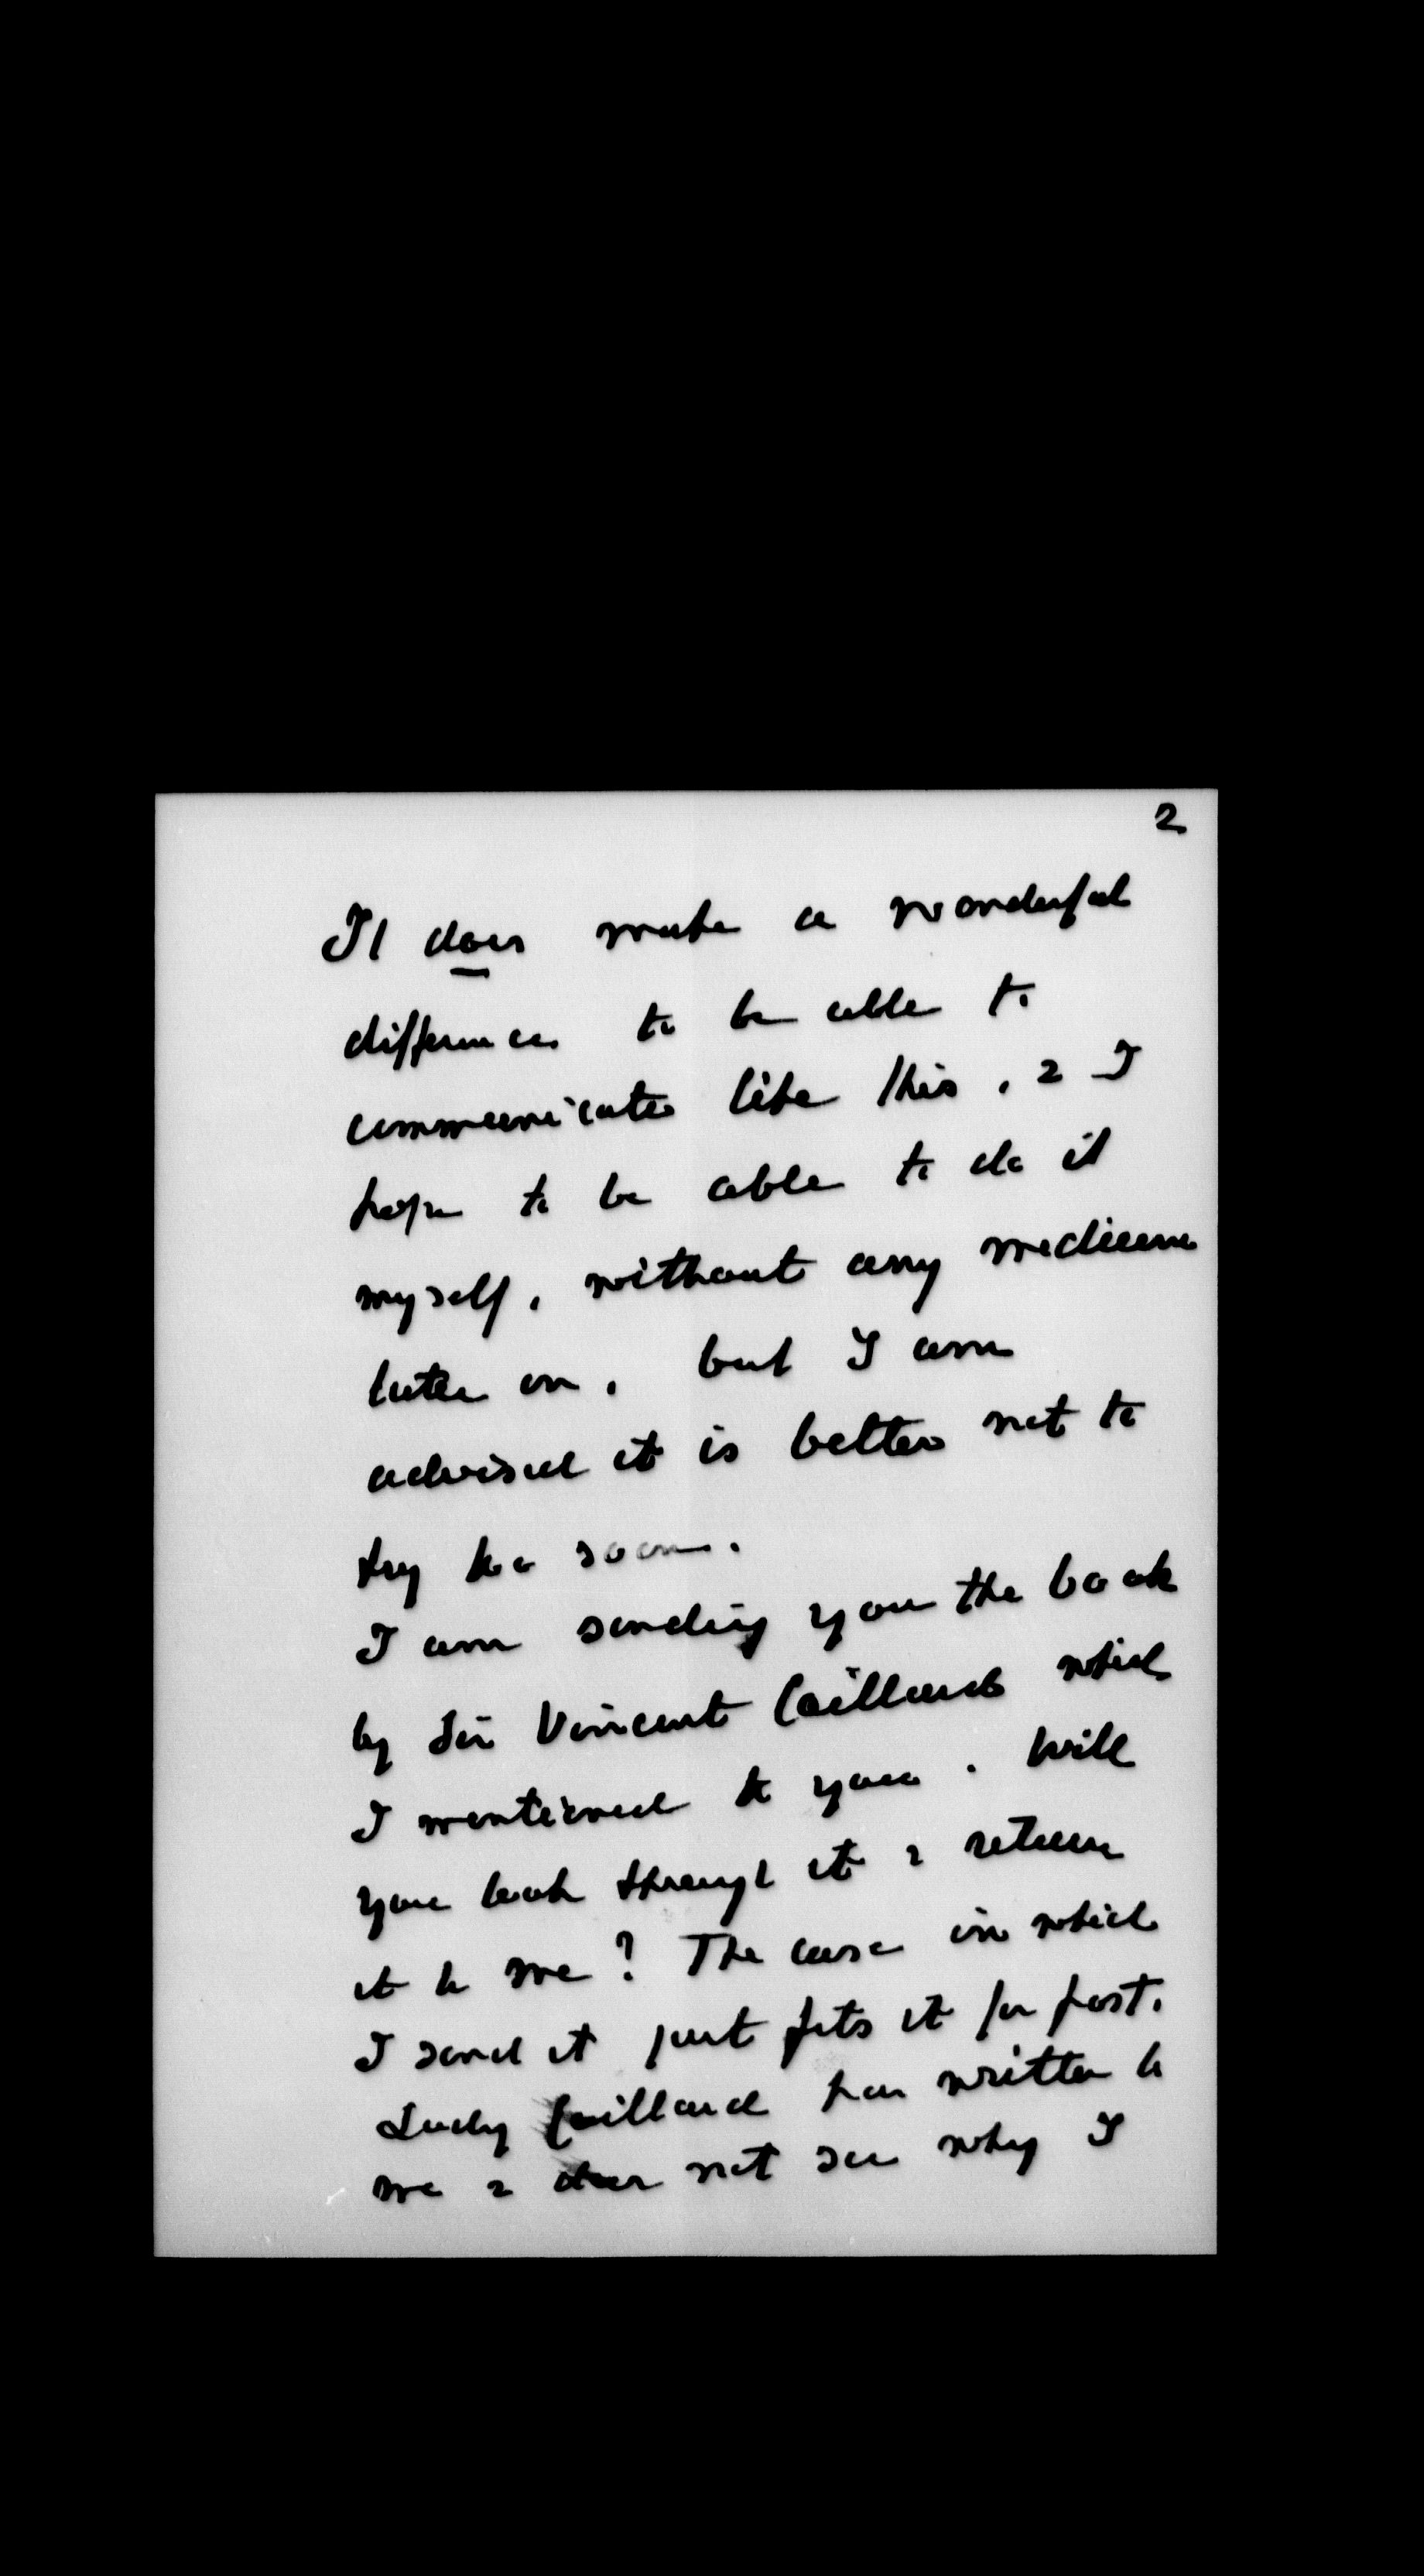 2
It does make a wonderful
difference to be able to
communicate like this, & I
hope to be able to do it
myself, without any medium
later on, but I am
advised it is better not to
try too soon.
I am sending you the book
by Sir Vincent Caillard which
I mentioned to you. Will
you look through it & return
it to me? The case in which
I send it just fits it for post.
Lady Caillard has written to
me & does not see why I